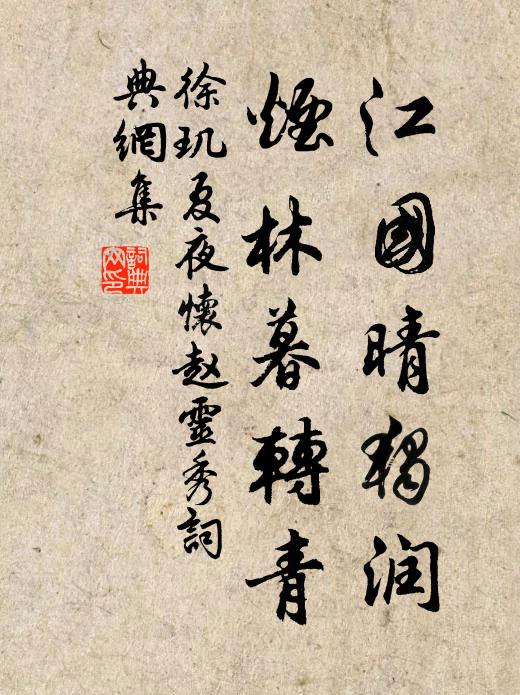 江國晴猶润
煙林暮轉青
徐玑夏夜懷赵靈秀詞
典網集
詞典